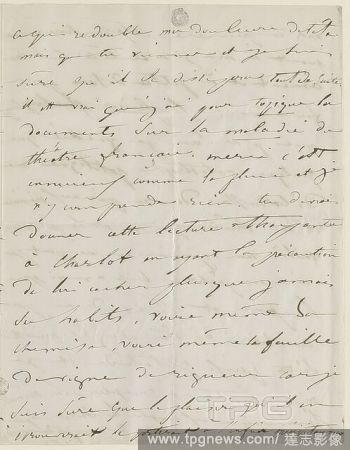 ce qui redouble ma douleur
mais que tu viennes et je suis
sûre qu'il se dissipera tout de suite
il est vrai que j'ai pour topique les
documents sur la maladie du
théâtre français. mais c'est
ennuyeux comme la pluie et je
n'y comprends rien. tu devrais
donner cette lecture
à Charlot en ayant la précaution
de lui cacher plus que jamais
ses habits, voire même sa
chemise, voire même la feuille
de vigne de rigueur car je
suis sûre que le plaisir qu'il en
TPG
www.tpgnews.com / 達志影像